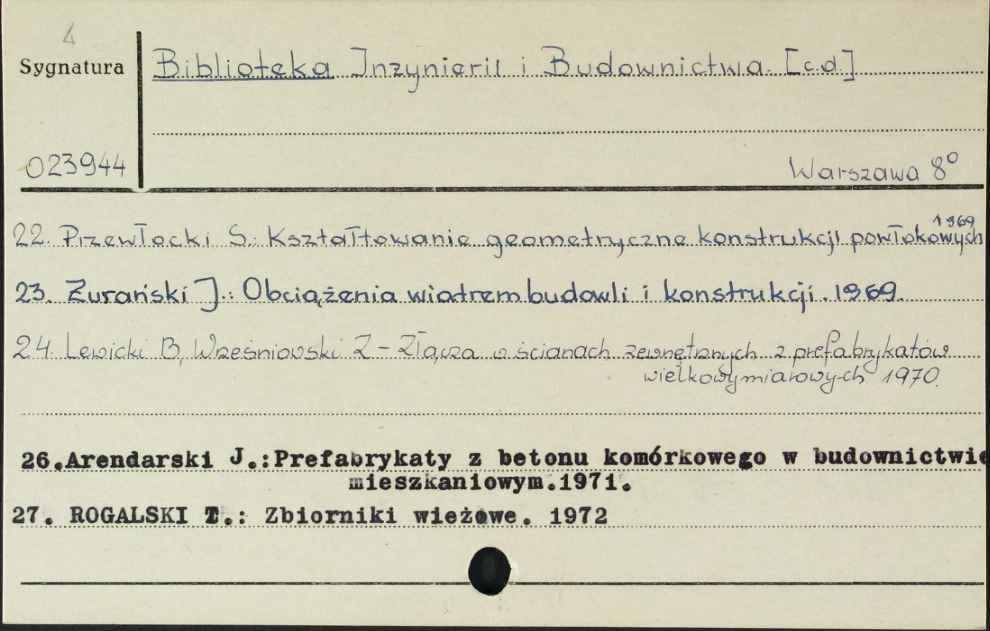 4
Sygnatura
Biblioteka Inzynierii i Budownictwa. [c.d.]
023944
Warszawa 8°
1969
22. Przewłocki S.: Kształtowanie geometryczne konstrukcji powłokowych
23. Żurański J.: Obciążenia wiatrem budowli i konstrukcji. 1969.
24. Lewicki B, Wreśniowski Z - Złącza w ścianach zewnętrznych z prefabrykatów
wielkowymiarowych 1970.
26.Arendarski J.:Prefabrykaty z betonu komórkowego w budownictwie
mieszkaniowym.1971.
27. ROGALSKI T.: Zbiorniki wieżowe. 1972